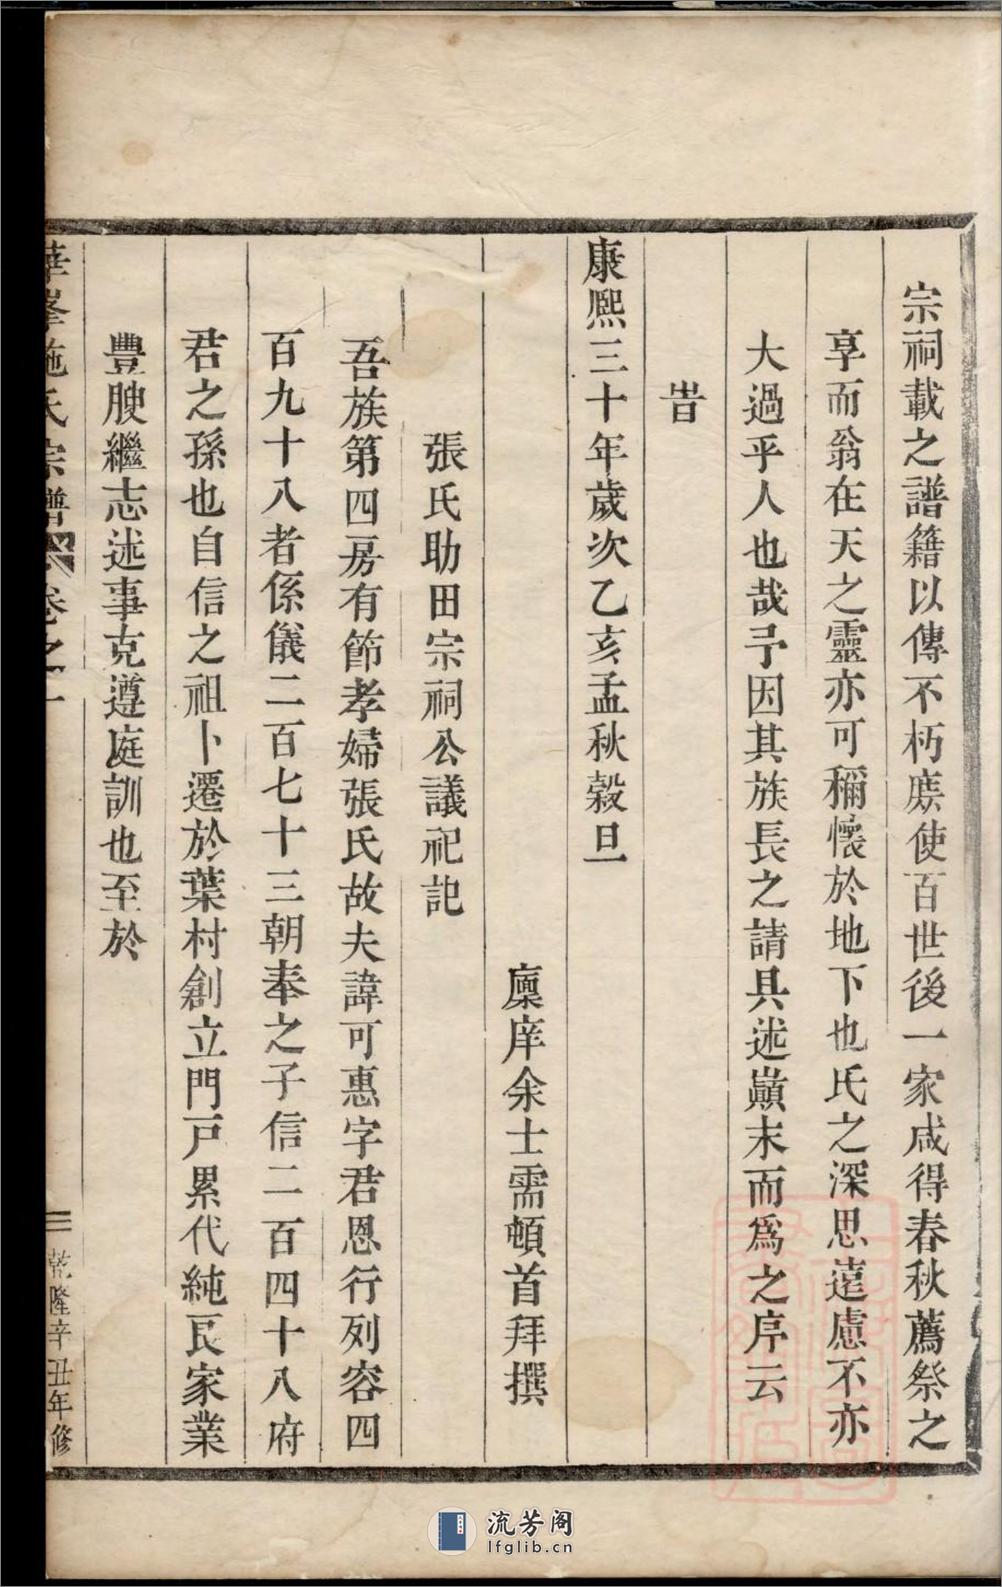 宗祠載之譜籍以傳不朽庶使百世後一家咸得春秋薦祭之
享而翁在天之靈亦可稱懷於地下也氏之深思遠慮不亦
大過乎人也哉予因其族長之請具述巔末而爲之序云
旹
康熙三十年歲次乙亥孟秋穀旦
廩庠余士需頓首拜撰
張氏助田宗祠公議祀記
吾族第四房有節孝婦張氏故夫諱可惠字君恩行列容四
百九十八者係儀二百七十三朝奉之子信二百四十八府
君之孫也自信之祖卜遷於葉村創立門戸累代純良家業
豐腴繼志述事克遵庭訓也至於
華峯施氏宗譜 卷之一
三 乾隆辛丑年修
流芳阁
lfglib.cn